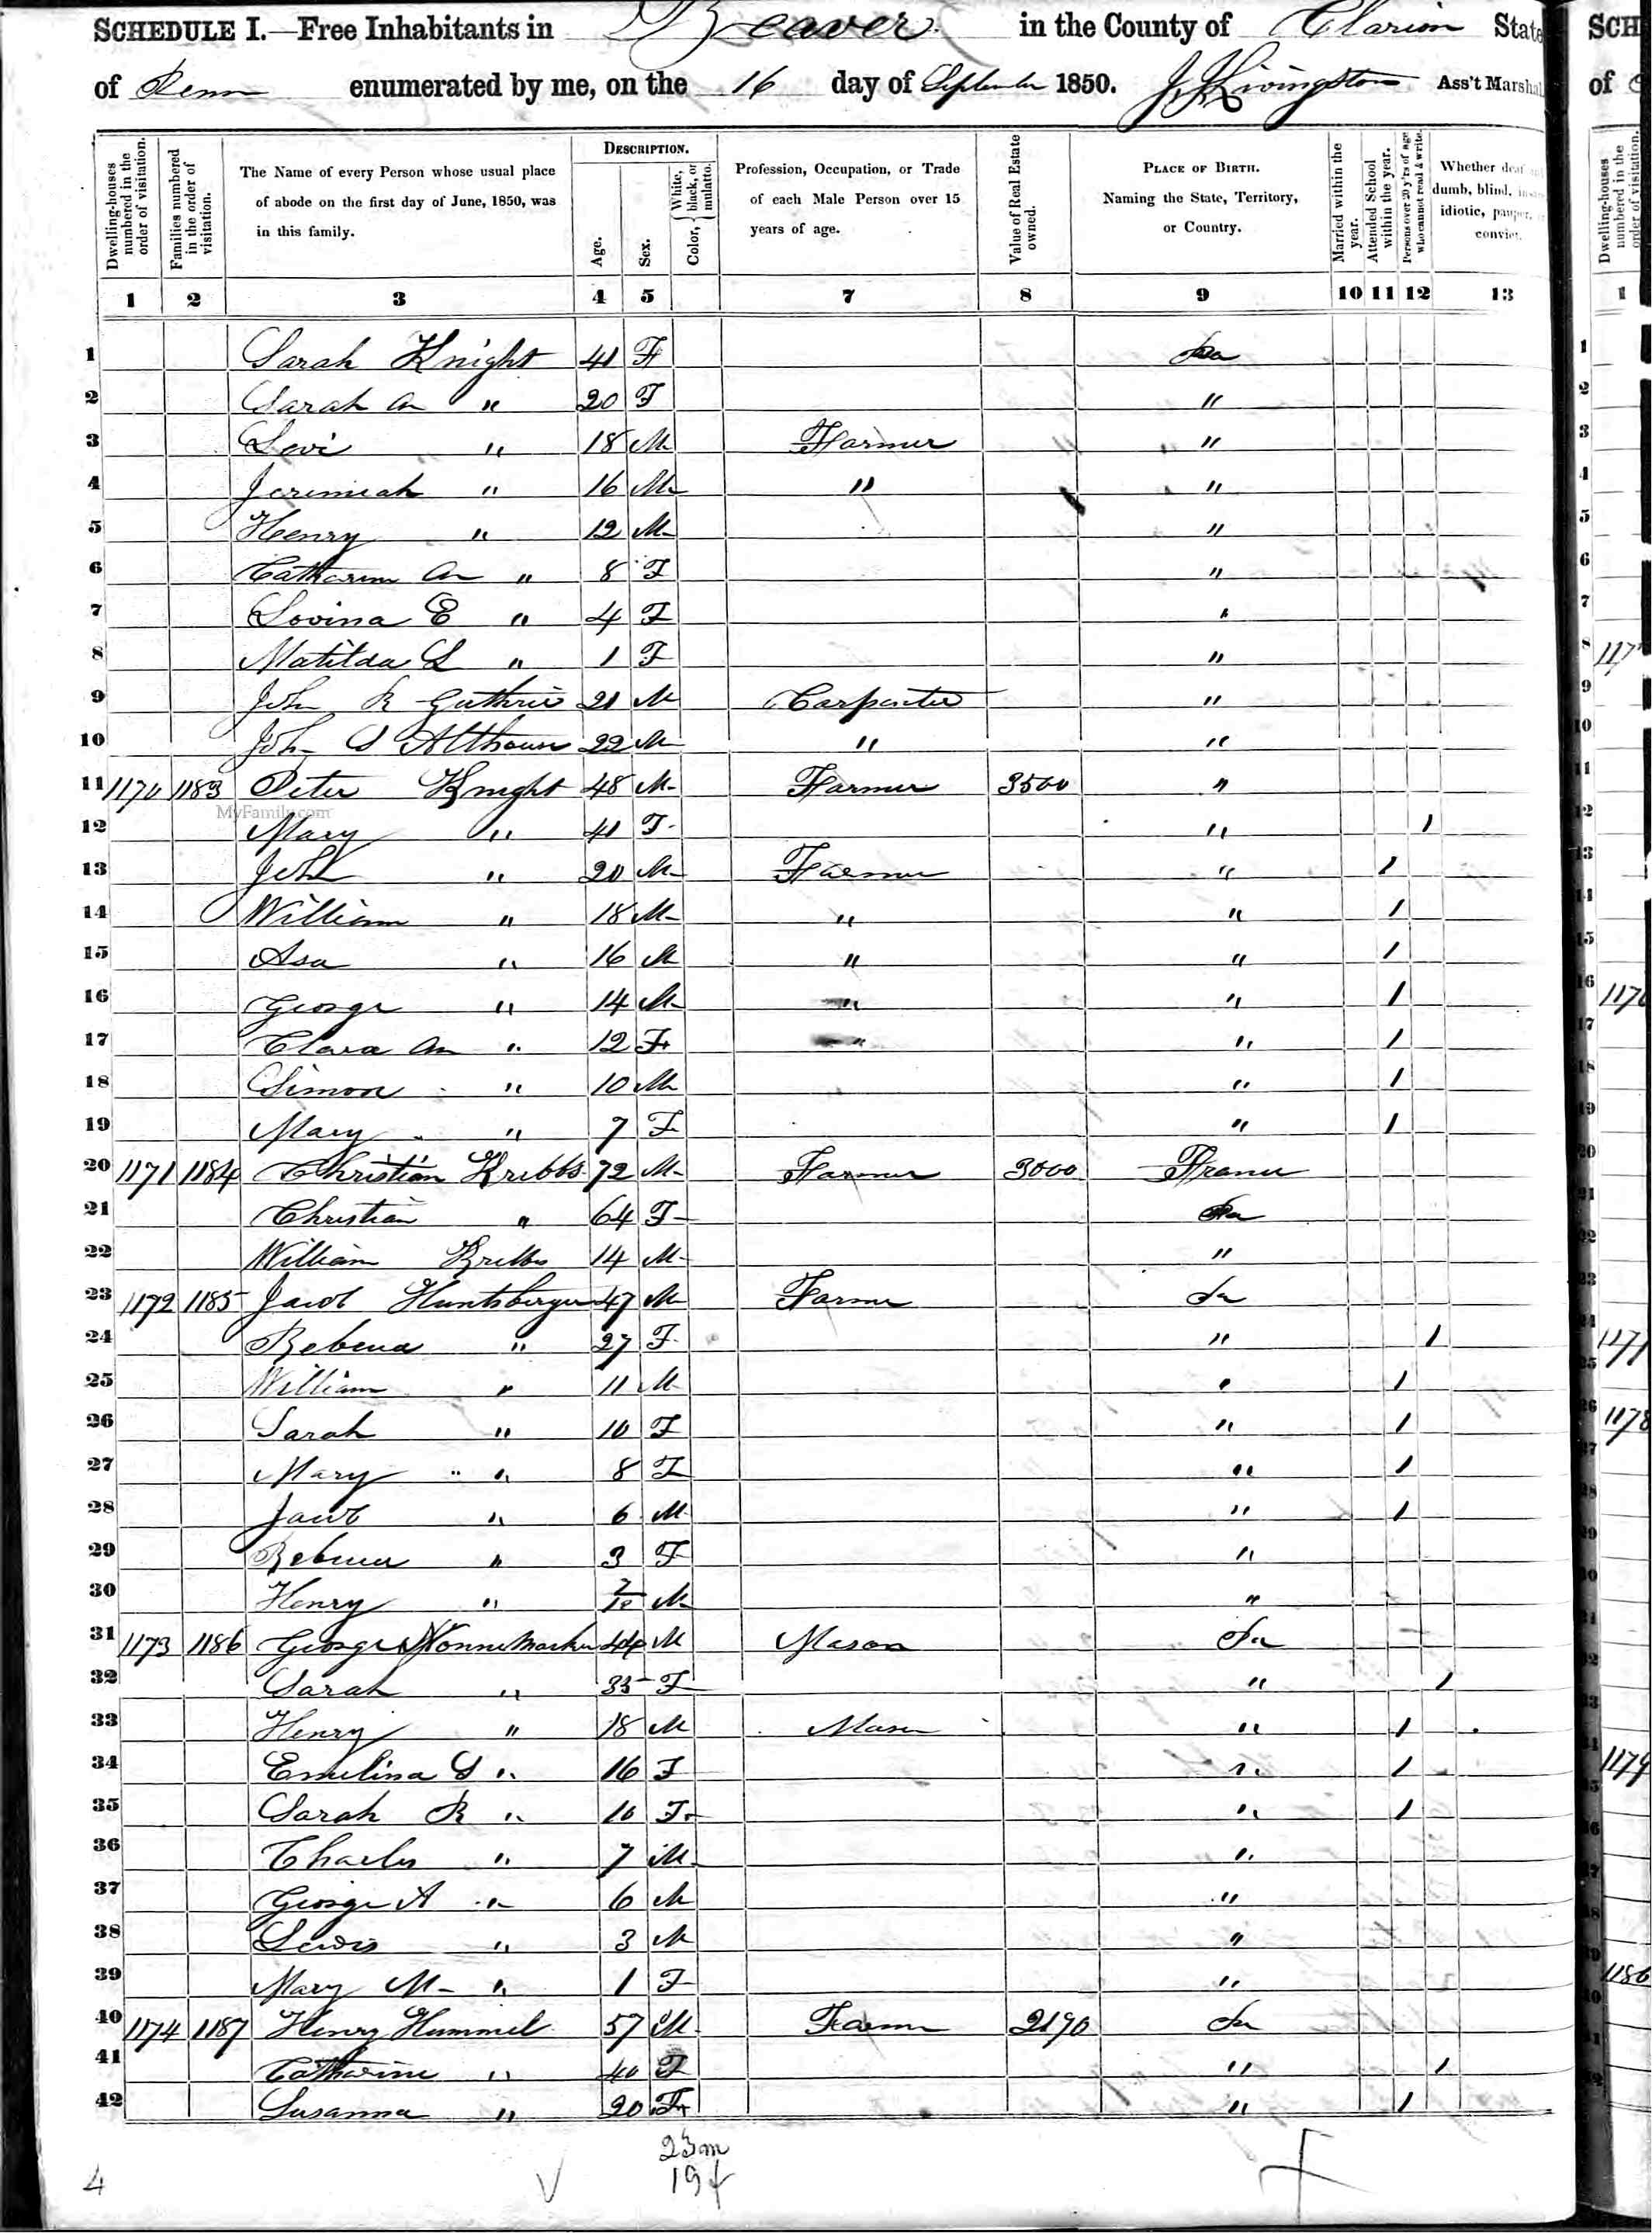 SCHEDULE I.—Free Inhabitants in Beaver in the County of Clarion State
of Penn enumerated by me, on the 16 day of September 1850. J J Livingston Ass't Marshal
Dwelling-houses numbered in the order of visitation.
Families numbered in the order of visitation.
The Name of every Person whose usual place of abode on the first day of June, 1850, was in this family.
DESCRIPTION.
Age.
Sex.
Color, { White, black, or mulatto.
Profession, Occupation, or Trade of each Male Person over 15 years of age.
Value of Real Estate owned.
PLACE OF BIRTH. Naming the State, Territory, or Country.
Married within the year.
Attended School within the year.
Persons over 20 y'rs of age who cannot read & write.
Whether deaf and dumb, blind, insane, idiotic, pauper, or convict.
1 2 3 4 5 7 8 9 10 11 12 13
1 Sarah Knight 41 F Pa
2 Sarah An " 20 F "
3 Levi " 18 M Farmer "
4 Jeremiah " 16 M " "
5 Henry " 12 M "
6 Catharine An " 8 F "
7 Lovina E " 4 F "
8 Matilda L " 1 F "
9 John R Guthrie 21 M Carpenter "
10 John S Althouse 22 M " "
11 1170 1183 Peter Knight 48 M Farmer 3500 "
MyFamily.com
12 Mary " 41 F " 1
13 John " 20 M Farmer " 1
14 William " 18 M " " 1
15 Asa " 16 M " " 1
16 George " 14 M " " 1
17 Clara An " 12 F " " 1
18 Simon " 10 M " 1
19 Mary " 7 F " 1
20 1171 1184 Christian Kribbs 72 M Farmer 3000 France
21 Christian " 64 F Pa
22 William Kribbs 14 M "
23 1172 1185 Jacob Huntsberger 47 M Farmer Pa
24 Rebecca " 27 F " 1
25 William " 11 M " 1
26 Sarah " 10 F " 1
27 Mary " 8 F " 1
28 Jacob " 6 M " 1
29 Rebecca " 3 F "
30 Henry " M "
31 1173 1186 George Nonnemacher 44 M Mason Pa
32 Sarah " 35 F " 1
33 Henry " 18 M Mason " 1
34 Emelina S " 16 F " 1
35 Sarah R " 10 F " 1
36 Charles " 7 M "
37 George A " 6 M "
38 Lewis " 3 M "
39 Mary M " 1 F "
40 1174 1187 Henry Hummel 57 M Farmer 2190 Pa
41 Catharine " 40 F " 1
42 Susanna " 20 F " 1
23 m
19 f
4